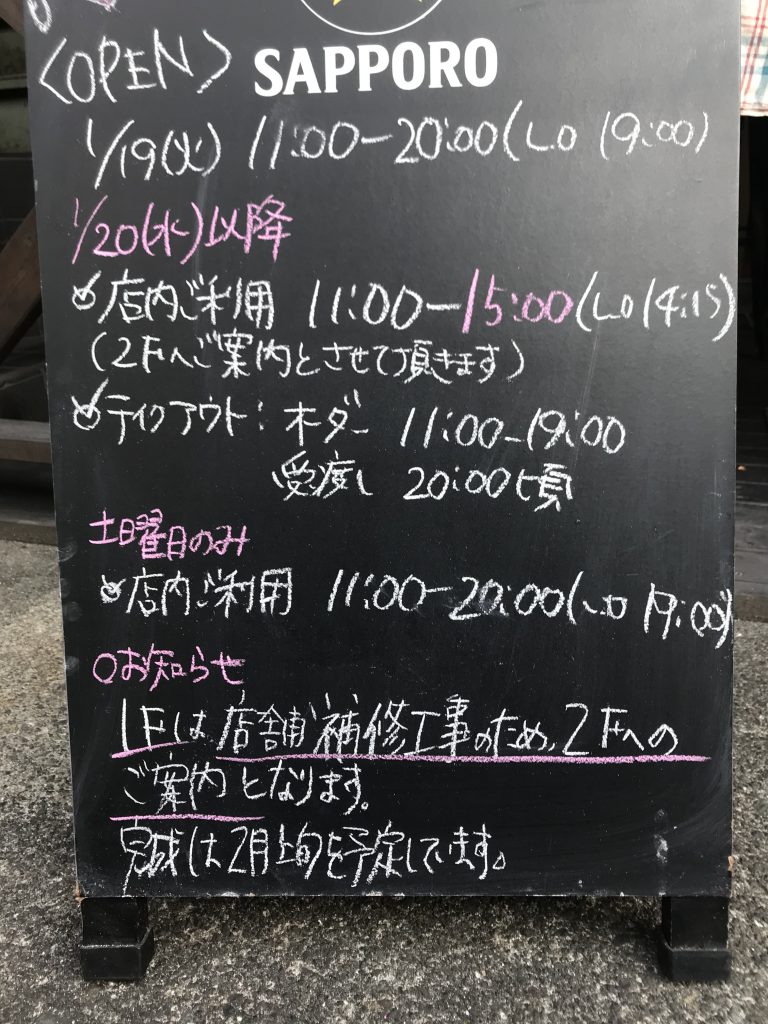 SAPPORO
<OPEN>
1/19(火) 11:00-20:00(L.O 19:00)
1/20(水)以降
店内ご利用 11:00-15:00(L.O 14:15)
(2Fへご案内とさせて頂きます)
テイクアウト: オーダー 11:00-19:00
受渡し 20:00頃
土曜日のみ
店内ご利用 11:00-20:00(L.O 19:00)
○お知らせ
1Fは、店舗補修工事のため、2Fへの
ご案内となります。
完成は2月上旬を予定しています。